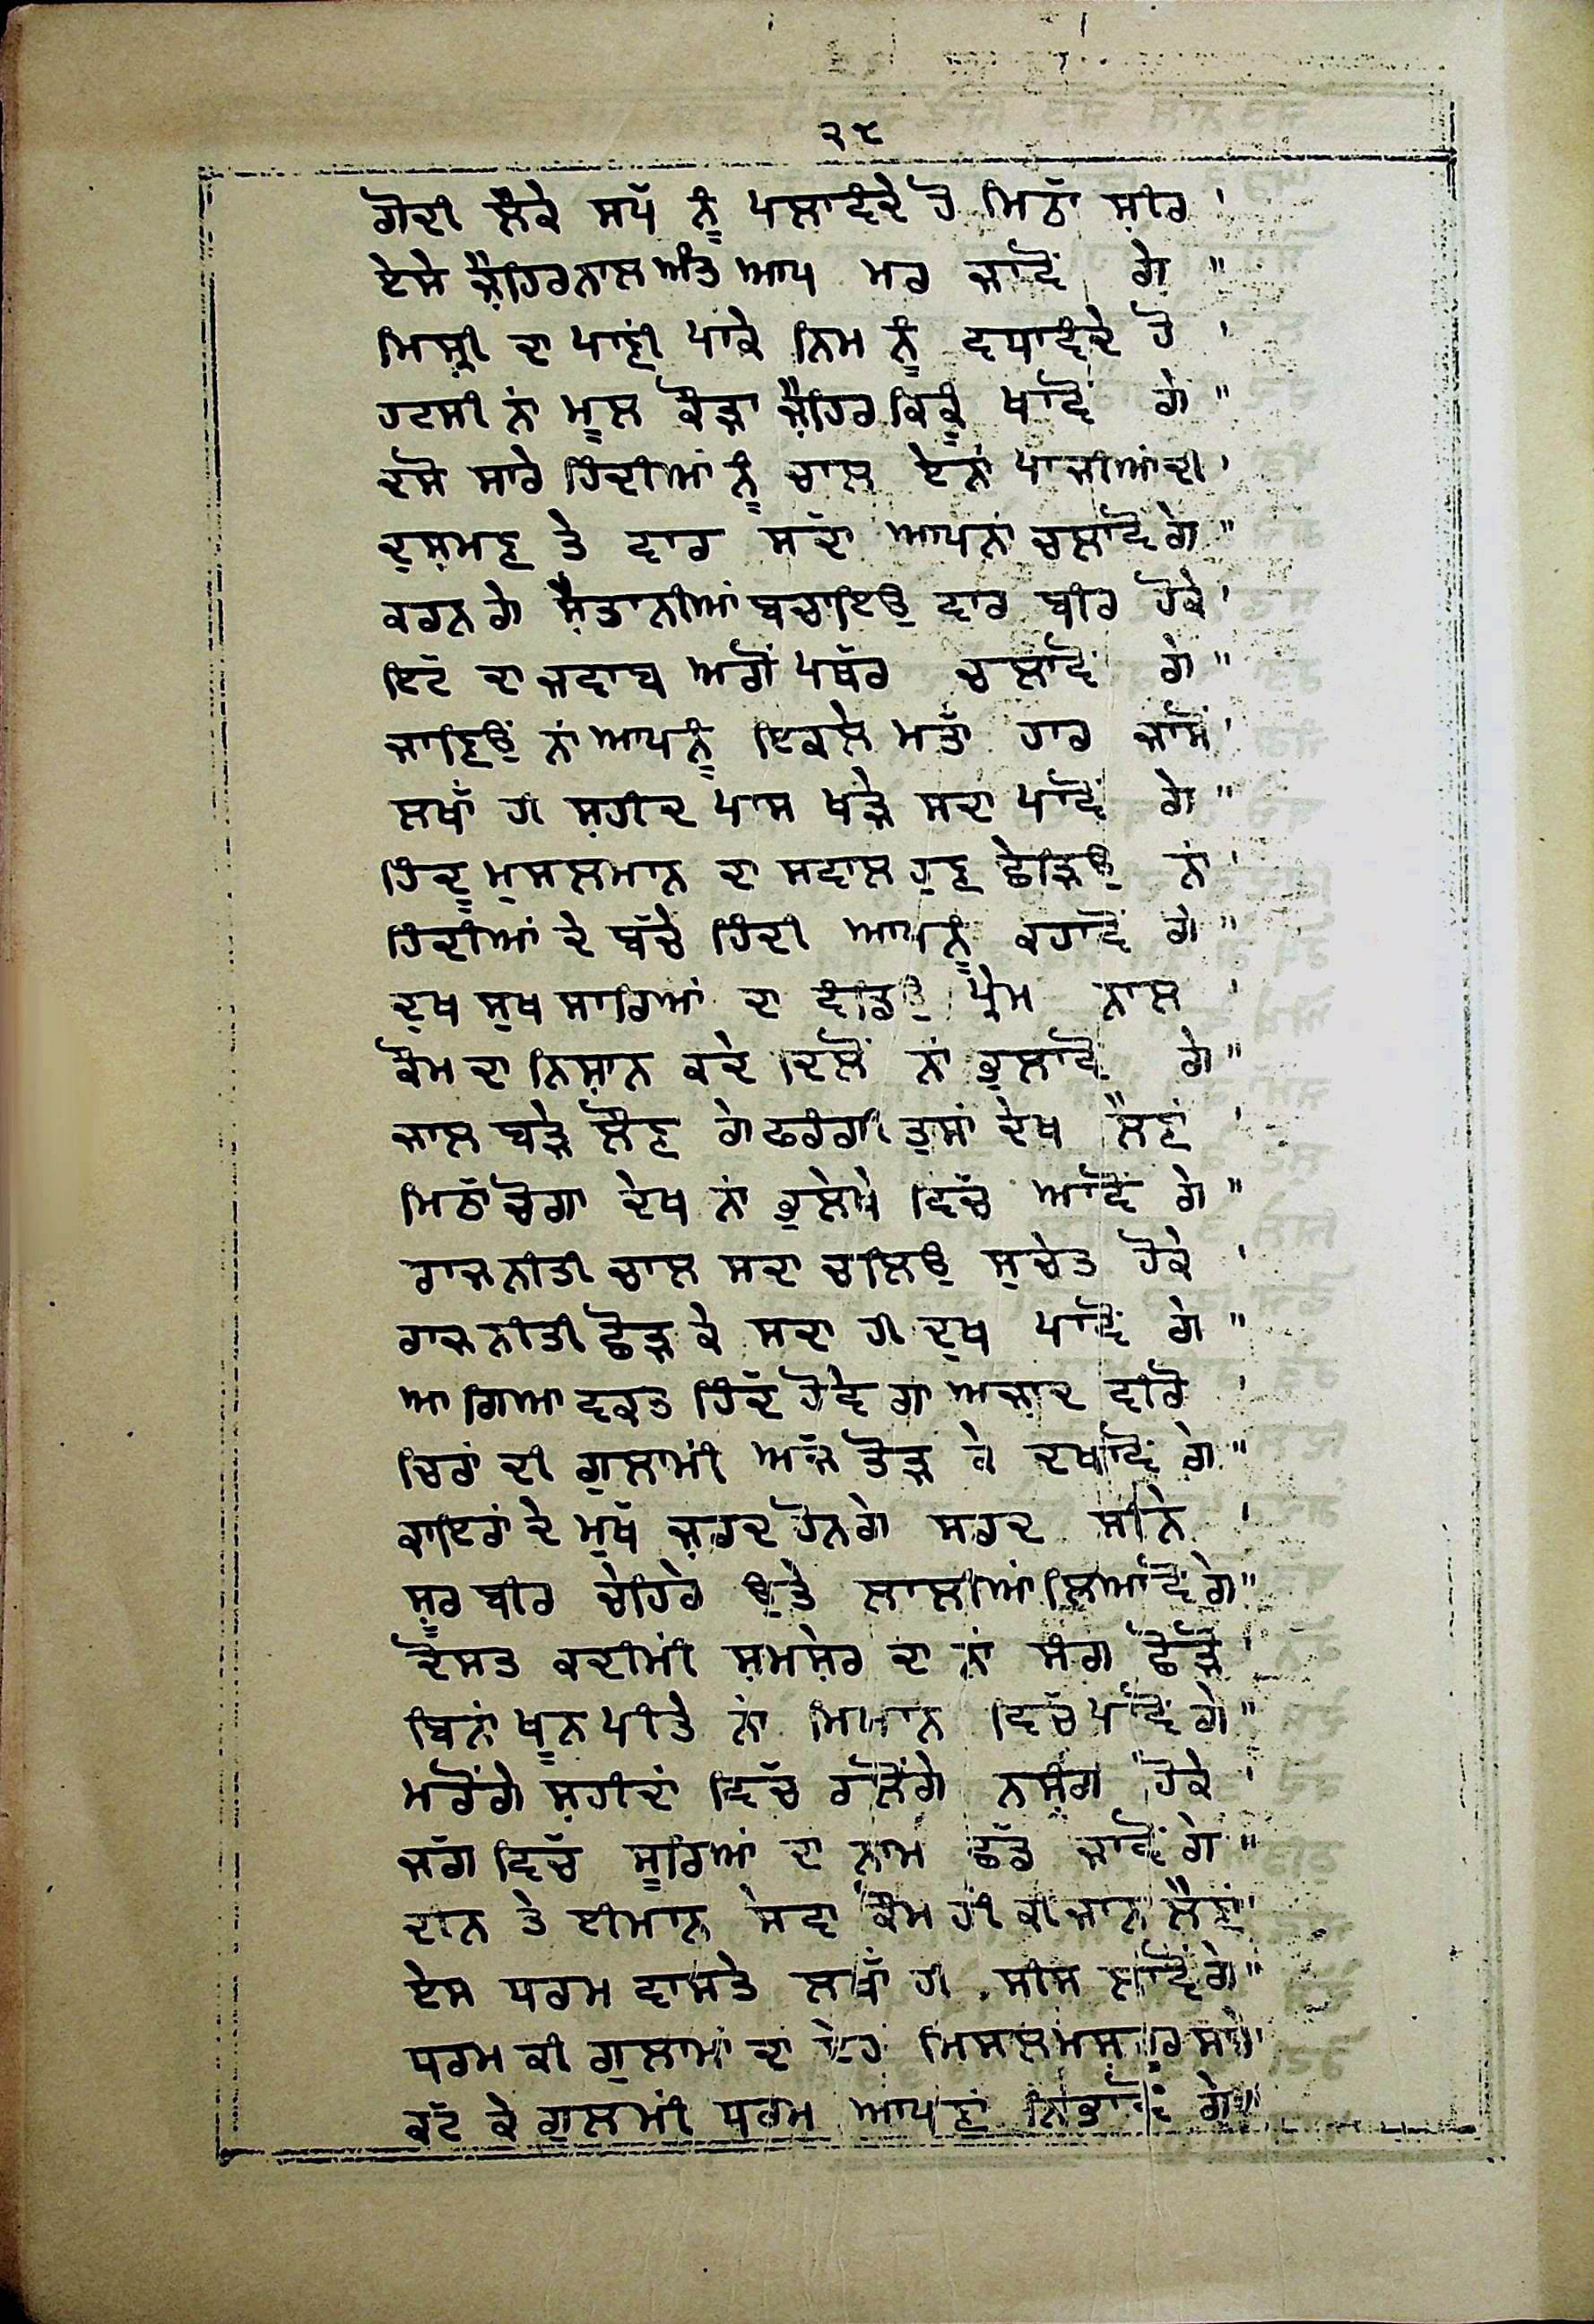 ੨੯
ਗੋਦੀ ਲੈਕੇ ਸਪੱ ਨੂੰ ਪਲਾਵੰਦੇ ਹੋ ਮਿਠਾੱ ਸ਼ੀਰ '
ਏਸੇ ਜ਼ੈਹਿਰ ਨਾਲ ਅੰਤ ਆਪ ਮਰ ਜਾਵੋਂ ਗੇ "
ਮਿਸ਼੍ਰੀ ਦਾ ਪਾਣੀ ਪਾਕੇ ਨਿਮ ਨੂੰ ਵਧਾਵੰਦੇ ਹੋ '
ਹਟਸੀ ਨਾਂ ਮੂਲ ਕੌੜਾ ਜ਼ੈਹਿਰ ਕਿਕੂੰ ਖਾਵੋਂ ਗੇ "
ਦਸੋ ਸਾਰੇ ਹਿੰਦੀਆਂ ਨੂੰ ਚਾਲ ਏਨਾਂ ਪਾਜੀਆਂ ਦੀ '
ਦੁਸ਼ਮਣ ਤੇ ਵਾਰ ਸਦਾ ਆਪਨਾਂ ਚਲਾਵੋਂ ਗੇ "
ਕਰਨ ਗੇ ਸ਼ੈਤਾਨੀਆਂ ਬਚਾਇਓੁ ਵਾਰ ਬੀਰ ਹੋਕੇ '
ਇਟੱ ਦਾ ਜਵਾਬ ਅਗੋਂ ਪਥੱਰ ਚਲਾਵੋਂ ਗੇ "
ਜਾਣਿਓੁਂ ਨਾਂ ਆਪਨੂੰ ਇਕਲੇ ਮਤਾੱ ਹਾਰ ਜਾਸੋਂ '
ਲਖਾਂ ਹੀ ਸ਼ਹੀਦ ਪਾਸ ਖੜੇ ਸਦਾ ਪਾਵੋਂ ਗੇ "
ਹਿੰਦੂ ਮੁਸਲਮਾਨ ਦਾ ਸਵਾਲ ਹੁਣ ਛੇੜਿਓੁ ਨਾਂ '
ਹਿੰਦੀਆਂ ਦੇ ਬੱਚੇ ਹਿੰਦੀ ਆਪਨੂੰ ਕਹਾਵੋਂ ਗੇ "
ਦੁਖ ਸੁਖ ਸਾਰਿਆਂ ਦਾ ਵੰਡਿਓੁ ਪ੍ਰੇਮ ਨਾਲ '
ਕੌਮ ਦਾ ਨਿਸ਼ਾਨ ਕਦੇ ਦਿਲੋਂ ਨਾਂ ਭੁਲਾਵੋਂ ਗੇ "
ਜਾਲ ਬੜੇ ਲੌਣ ਗੇ ਫਰੰਗੀ ਤੁਸਾਂ ਦੇਖ ਲੈਣਾਂ '
ਮਿਠਾੱ ਚੋਗਾ ਦੇਖ ਨਾਂ ਭੁਲੇਖੇ ਵਿਚੱ ਆਵੋਂ ਗੇ "
ਰਾਜ ਨੀਤੀ ਚਾਲ ਸਦਾ ਚਲਿਓੁ ਸੁਚੇਤ ਹੋਕੇ '
ਰਾਜ ਨੀਤੀ ਛੋੜ ਕੇ ਸਦਾ ਹੀ ਦੁਖ ਪਾਵੋਂ ਗੇ "
ਆ ਗਿਆ ਵਕਤ ਹਿੰਦ ਹੋਵੇ ਗਾ ਅਜ਼ਾਦ ਵੀਰੋ '
ਚਿਰਾਂ ਦੀ ਗੁਲਾਮੀਂ ਅਜੱ ਤੋੜ ਕੇ ਦਖਾਵੋਂ ਗੇ "
ਕਾਇਰਾਂ ਦੇ ਮੁਖੱ ਜ਼ਰਦ ਹੋਨਗੇ ਸਰਦ ਸੀਨੇ '
ਸੂਰ ਬੀਰ ਚੇਹਿਰੇ ਓੁਤੇ ਲਾਲੀਆਂ ਲਿਆਵੋਂ ਗੇ "
ਦੋਸਤ ਕਦੀਮੀਂ ਸ਼ਮਸ਼ੇਰ ਦਾ ਨਾਂ ਸੰਗ ਛੋੜੋ '
ਬਿਨਾਂ ਖੂਨ ਪੀਤੇ ਨਾਂ ਮਿਆਨ ਵਿਚੱ ਪਾਵੋਂ ਗੇ "
ਮਰੋਂਗੇ ਸ਼ਹੀਦਾਂ ਵਿਚੱ ਰਲੋਂਗੇ ਨਸੰਗ ਹੋਕੇ '
ਜੱਗ ਵਿਚੱ ਸੂਰਿਆਂ ਦਾ ਨਾਮ ਛੱਡ ਜਾਵੋਂ ਗੇ "
ਦੀਨ ਤੇ ਈਮਾਨ ਸੇਵਾ ਕੌਮ ਹੀ ਕੀ ਜਾਨ ਲੈਣਾਂ '
ਏਸ ਧਰਮ ਵਾਸਤੇ ਲਖਾਂ ਹੀ ਸੀਸ ਲਾਵੋਂ ਗੇ "
ਧਰਮ ਕੀ ਗੁਲਾਮਾਂ ਦਾ ਏਹ ਮਿਸਲ ਮਸ਼ਹੂਰ
ਕਟੱ ਕੇ ਗੁਲਮੀਂ ਧਰਮ ਆਪਣਾਂ ਨਿਭਾਵੋਂ ਗੇ "